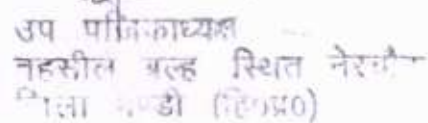 उप पंजिकाध्यक्ष
तहसील बल्ह स्थित नेरचौक
जिला मण्डी (हि0प्र0)